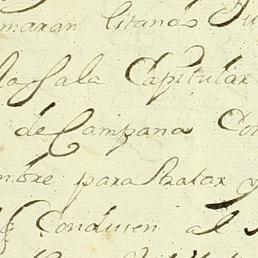 maran litando
la Sala Capitular
de Campana Con
mbre para tratar y
Conducen al